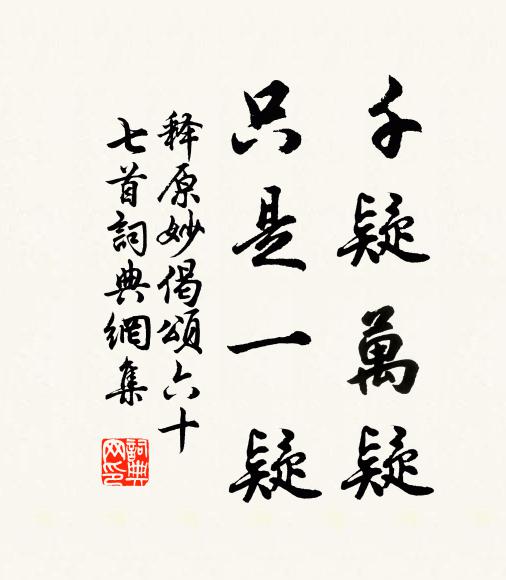 千疑萬疑
只是一疑
释原妙偈頌六十
七首詞典網集
詞典
网印